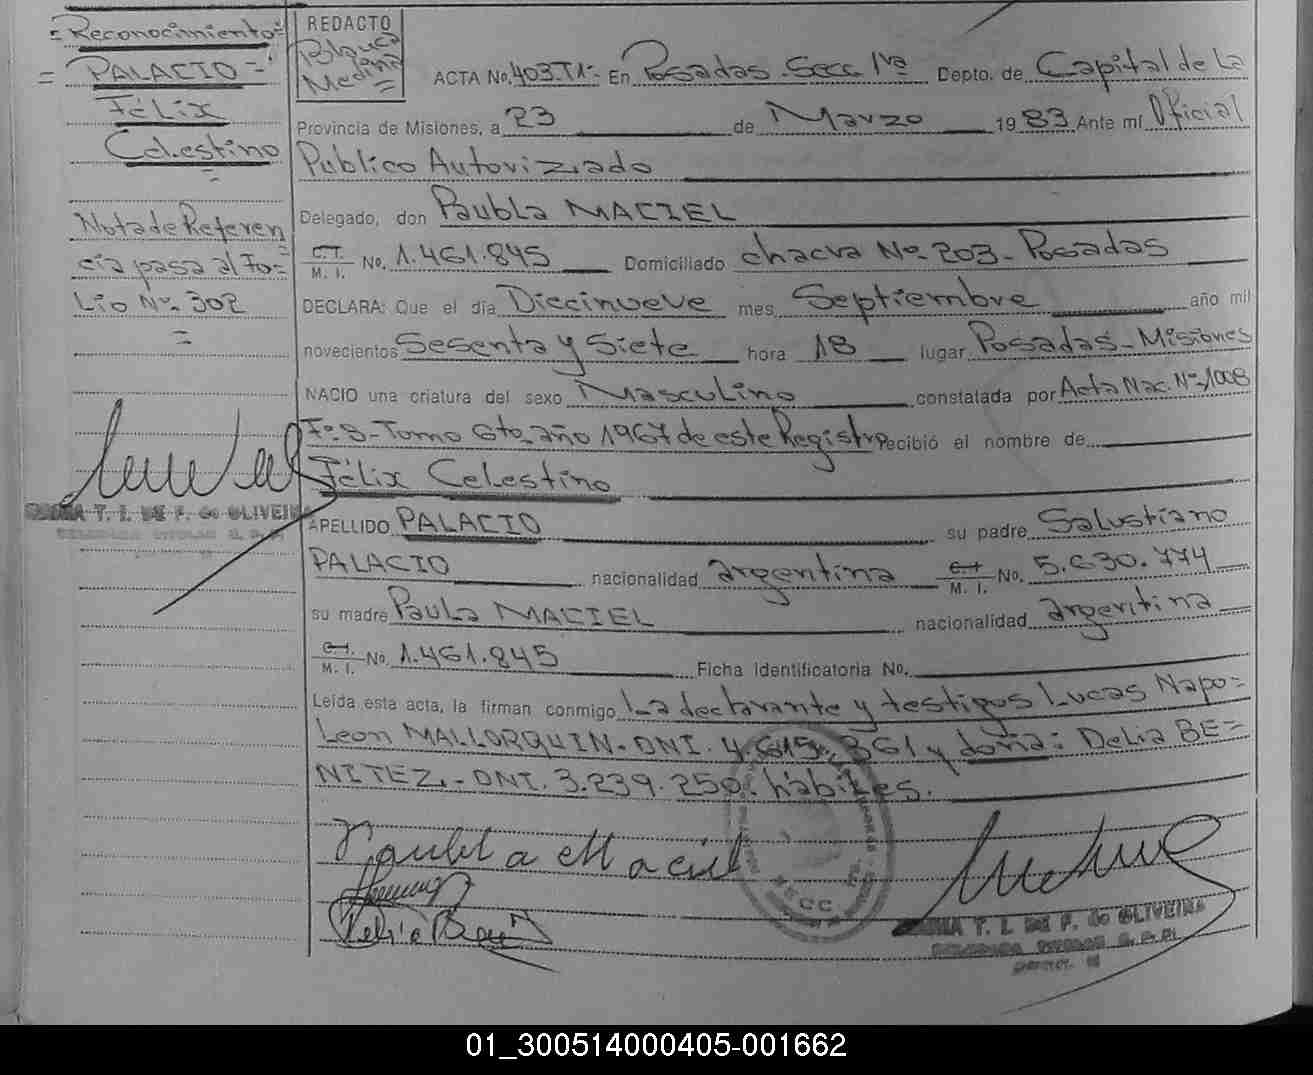 =Reconocimiento=
= PALACIO =
Félix
Celestino
=
Nota de Referen
=
cia pasa al Fo=
Lio Nº. 302
=
REDACTO
Blanca
Medina
=
ACTA No. 403.T1º- En Posadas. Secc. 1ra Depto. de Capital de La
Provincia de Misiones, a 23 de Marzo 1983 Ante mí Oficial
Publico Autorizado
Delegado, don Paubla MACIEL
C.I.
M. I. No. 1.461.845 Domiciliado chacra Nº. 203- Posadas
DECLARA: Que el día Diecinueve mes Septiembre año mil
novecientos Sesenta y Siete hora 18 lugar Posadas- Misiones
NACIO una criatura del sexo Masculino constatada por Acta Nac. Nº. 1008
Fº 8- Tomo 6to- año 1967 de este Registr. Recibió el nombre de
Félix Celestino
APELLIDO PALACIO su padre Salustiano
PALACIO nacionalidad argentina C.I.
M. I. No. 5.630.774
su madre Paula MACIEL nacionalidad argentina
C.I.
M. I. No. 1.461.845 Ficha Identificatoria No.
Leída esta acta, la firman conmigo La declarante y testigos Lucas Napo=
Leon MALLORQUIN- DNI. 4.615.361 y doña: Delia BE=
NITEZ.- DNI. 3.239.250. hábiles.
Paubla Maciel
Delia Benit
T. I. DE F. de OLIVEIRA
T. I. DE F. de OLIVEIRA
SECC.
01_300514000405-001662